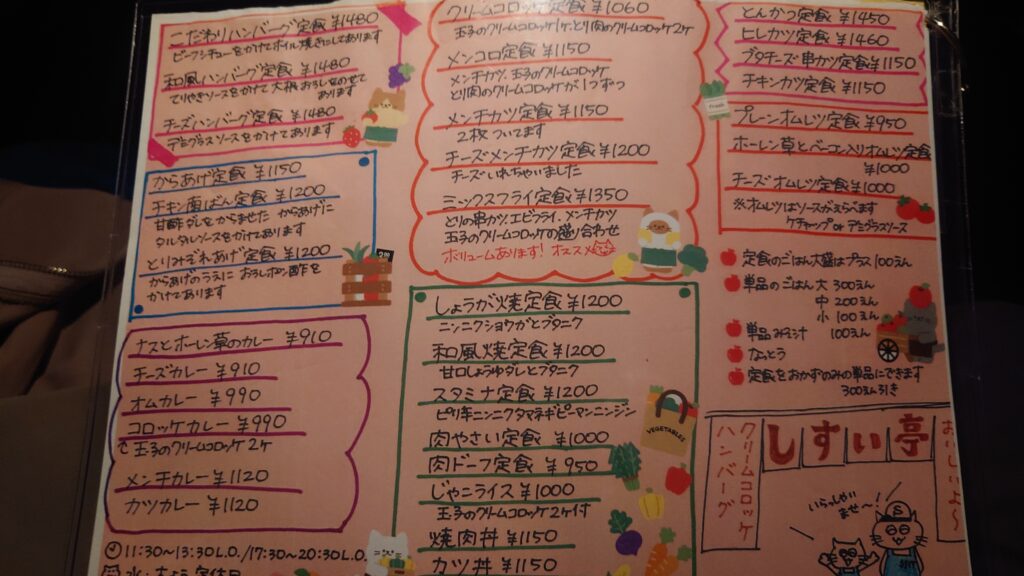 こだわりハンバーグ定食 ¥1480
ビーフシチューをかけてオイル焼きにしてあります
和風ハンバーグ定食 ¥1480
てりやきソースをかけて大根おろしものせて
あります
チーズハンバーグ定食 ¥1480
デミグラスソースをかけてあります
からあげ定食 ¥1150
チキン南ばん定食 ¥1200
甘酢ダレをからませた からあげに
タルタルソースをかけてあります
とりみぞれあげ定食 ¥1200
からあげのうえに おろしポン酢を
かけてあります
ナスとホーレン草のカレー ¥910
チーズカレー ¥910
オムカレー ¥990
コロッケカレー ¥990
玉子のクリームコロッケ 2ケ
メンチカレー ¥1120
カツカレー ¥1120
11:30~13:30L.O./17:30~20:30L.O.
クリームコロッケ定食 ¥1060
玉子のクリームコロッケ1ケ、とり肉のクリームコロッケ2ケ
メンコロ定食 ¥1150
メンチカツ、玉子のクリームコロッケ
とり肉のクリームコロッケが1つずつ
メンチカツ定食 ¥1150
2枚ついてます
チーズメンチカツ定食 ¥1200
チーズいれちゃいました
ミックスフライ定食 ¥1350
とりの串カツ、エビフライ、メンチカツ
玉子のクリームコロッケの盛り合わせ
ボリュームあります! オススメ
しょうが焼定食 ¥1200
ニンニクショウガとブタニク
和風焼定食 ¥1200
甘口しょうゆダレとブタニク
スタミナ定食 ¥1200
ピリ辛ニンニクタマネギピーマンニンジン
肉やさい定食 ¥1000
肉ドーフ定食 ¥950
じゃこライス ¥1000
玉子のクリームコロッケ2ケ付
焼肉丼 ¥1150
カツ丼 ¥1150
とんかつ定食 ¥1450
ヒレカツ定食 ¥1460
ブタチーズ串カツ定食 ¥1150
チキンカツ定食 ¥1150
fresh
プレーンオムレツ定食 ¥950
ホーレン草とベーコン入りオムレツ定食
¥1000
チーズオムレツ定食 ¥1000
※オムレツはソースがえらべます
ケチャップ or デミグラスソース
定食のごはん大盛はプラス100えん
単品のごはん 大 300えん
中 200えん
小 100えん
単品みそ汁 100えん
なっとう
定食をおかずのみの単品にできます
300えん引き
VEGETABLES
クリームコロッケ
ハンバーグ
しすい亭
おいしいよ~
いらっしゃい
ませ~